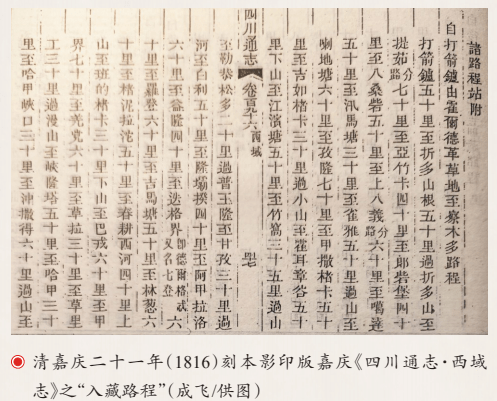 諸路程站附
自打箭鑪由霍爾德革草地至察木多路程
打箭鑪五十里至折多山根五十里過折多山至
提茹分路七十里至亞竹卡四十里至郎砦堡四十
里至八桑砦五十里至上八義分路六十里至噶達
五十里至汛馬塘三十里至雀雅五十里過山至
喇地塘六十里至孜隆七十里至甲撒格卡五十
里至吉如格卡三十里過小山至霍耳章谷五十
里下山至江濱塘五十里至竹窩三十五里過山
四川通志 卷百九十六 西域
至勒恭松多二十里過普王隆至甘孜三十里過
河至白利五十里至隆壩四十里至阿甲拉洛
六十里至益隆四十里至迭格界即德爾格忒又名七登六
十里至羅登六十里至吉馬塘五十里至林葱六
十里至稽泥拉沱五十里至春耕西河四十里上
山至班的楮卡三十里下山至巴戎六十里至甲
界七十里至光克六十里至草拉三十里至草里
工三十里過漫山至峽隆塔五十里至哈甲三十
里至哈甲峽口三十里至沖撒得六十里過山至
清嘉庆二十一年(1816)刻本影印版嘉庆《四川通志·西域
志》之“入藏路程”(成飞/供图)